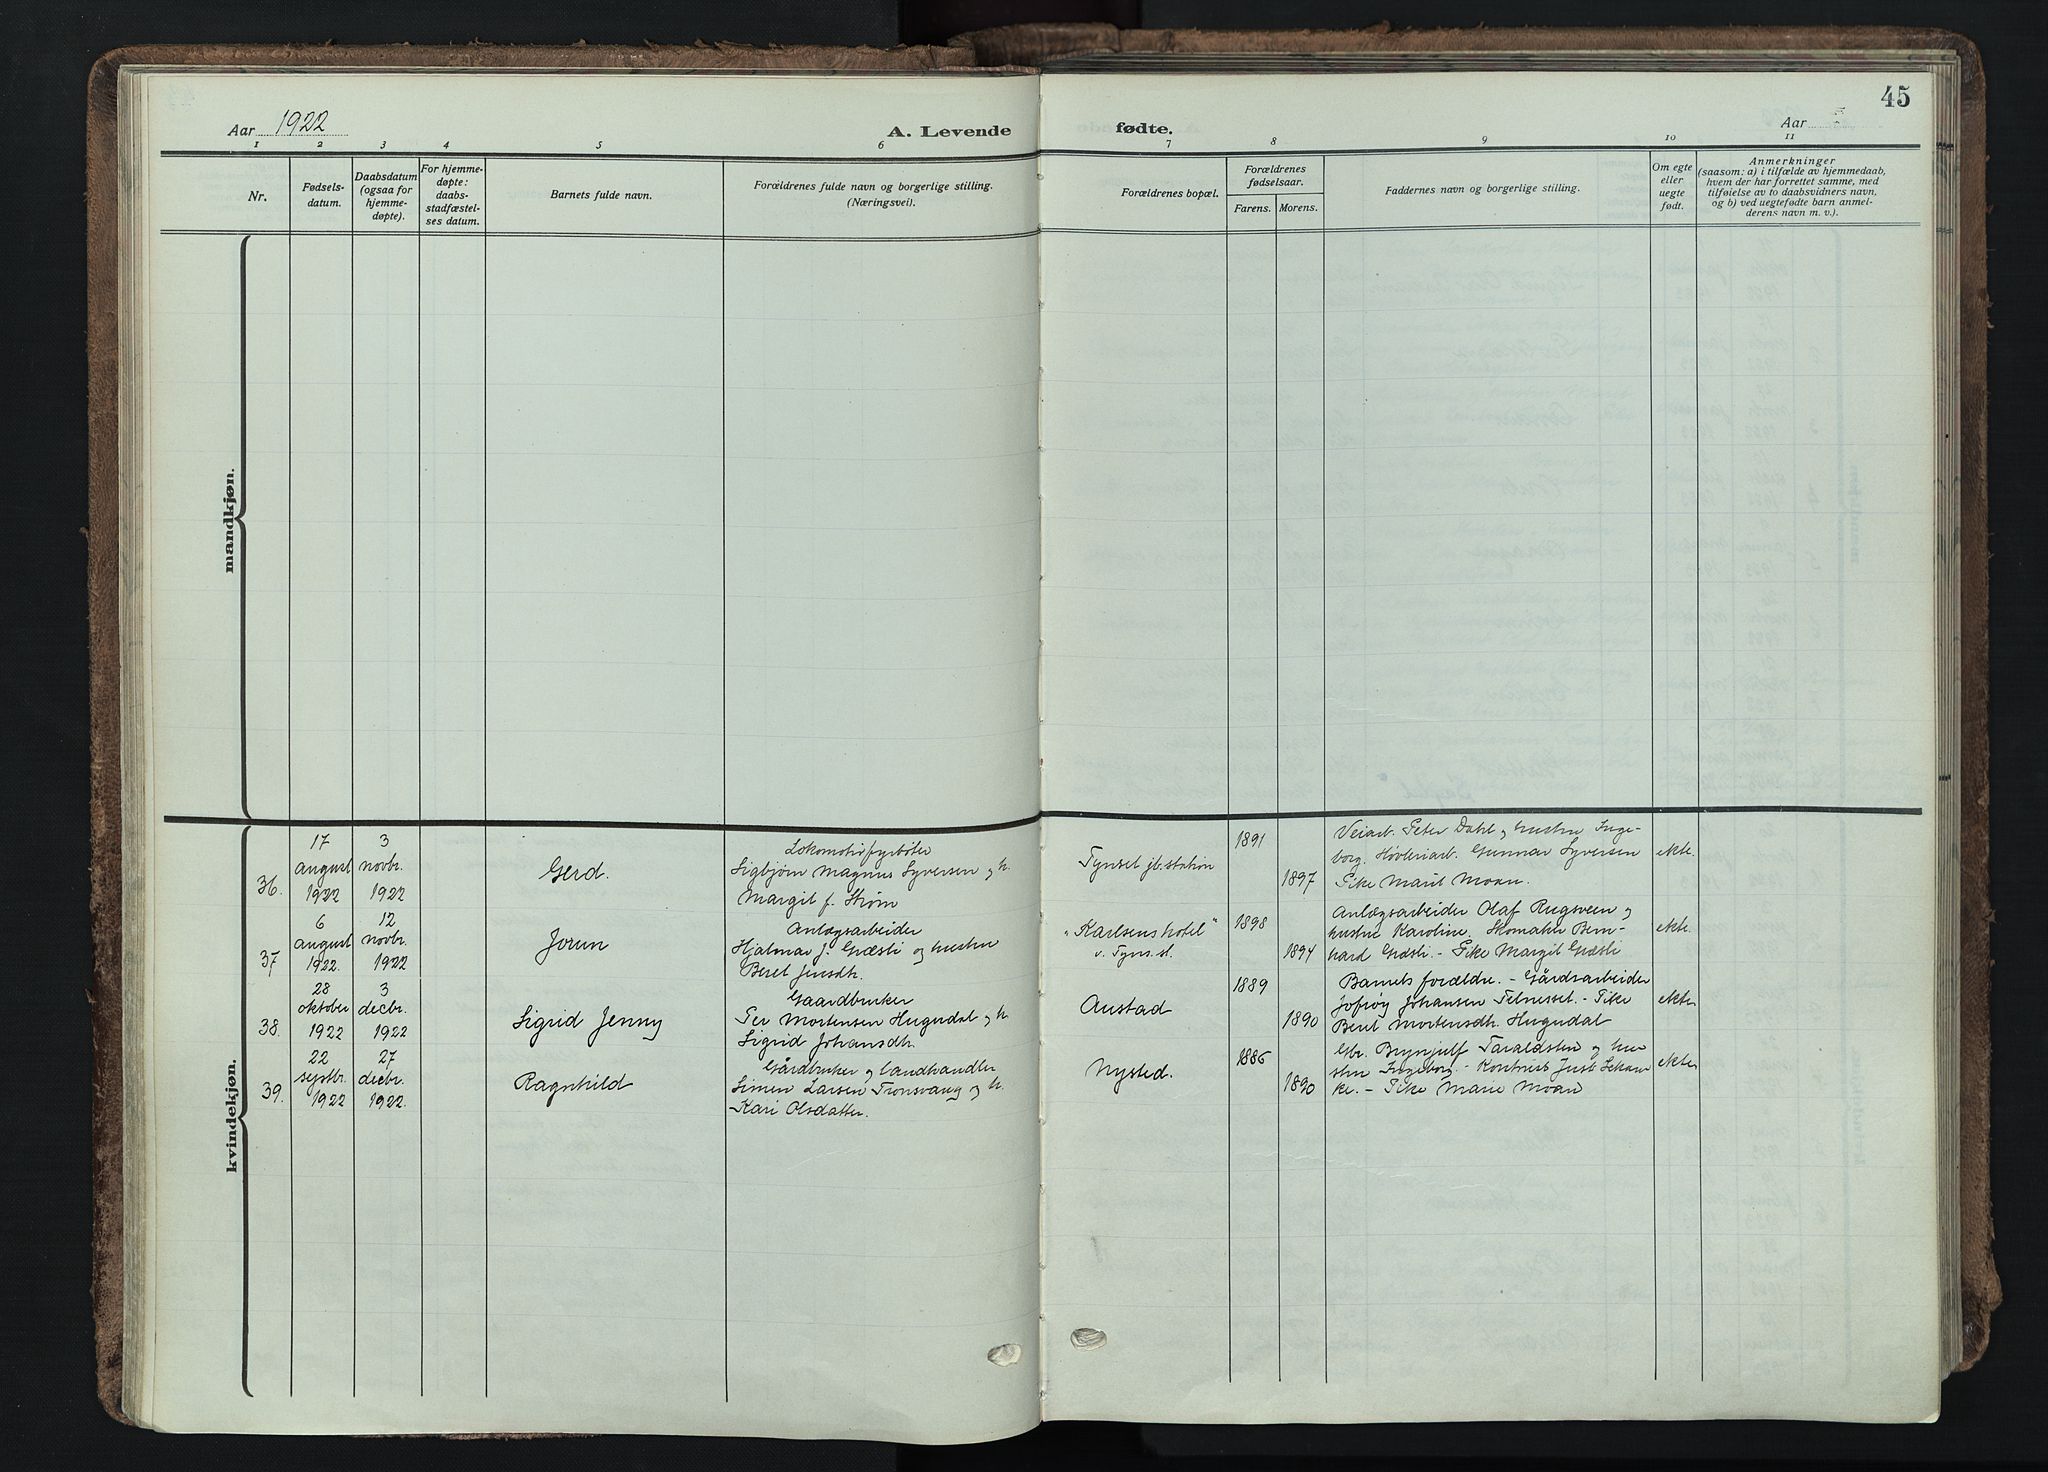 45
Aar 1922
A. Levende
fødte.
Aar
1 2 3 4 5 6 7 8 9 10 11
Nr.
Fødsels-
datum.
Daabsdatum
(ogsaa for
hjemme-
døpte).
For hjemme-
døpte:
daabs-
stadfæstel-
ses datum.
Barnets fulde navn.
Forældrenes fulde navn og borgerlige stilling.
(Næringsvei).
Forældrenes bopæl.
Forældrenes
fødselsaar.
Farens. Morens.
Faddernes navn og borgerlige stilling.
Om egte
eller
uegte
født.
Anmerkninger
(saasom: a) i tilfælde av hjemmedaab,
hvem der har forrettet samme, med
tilføielse av to daabsvidners navn,
og b) ved uegtefødte barn anmel-
derens navn m. v.).
mandkjøn.
kvindekjøn.
36.
17
august
1922
3
novbr.
1922
Gerd.
Lokomotivfyrbøter
Sigbjørn Magnus Syversen og h.
Margit f. Strøm
Tynset jb. station
1891
1897
Veiarb. Peter Dahl og hustru Inge-
borg. Høvleriarb. Gunnar Syversen
Pike Marit Moan.
ekte.
37
6
august
1922.
12
novbr.
1922
Jorun
Anlægsarbeider
Hjalmar J. Græsli og hustru
Beret Jensdtr.
"Karlsens hotel"
v. Tyns. st.
1898
1894
Anlægsarbeider Olaf Rugsveen og
hustru Karoline. Bern-
hard Græsli. - Pike Margit Græsli
ekte.
38.
28
oktober
1922
3
decbr.
1922
Sigrid Jenny
Gaardbruker
Per Mortensen Hugudal og h.
Sigrid Johansdtr.
Austad
1889
1890
Barnets foreldre. - Gårdsarbeider
Johansen Telnesset. - Pike
Berit Mortensdtr. Hugudal
ekte
39.
22
septbr.
1922
27
decbr.
1922.
Ragnhild
Gårdbruker og landhandler
Simen Larsen Tronsvang og h.
Kari Olsdatter.
Nysted.
1886
1890
Gbr. Brynjulf Taraldsten og hu-
stru Ingeborg. - Kontorist Just
ke. - Pike Marie Moan
ekte